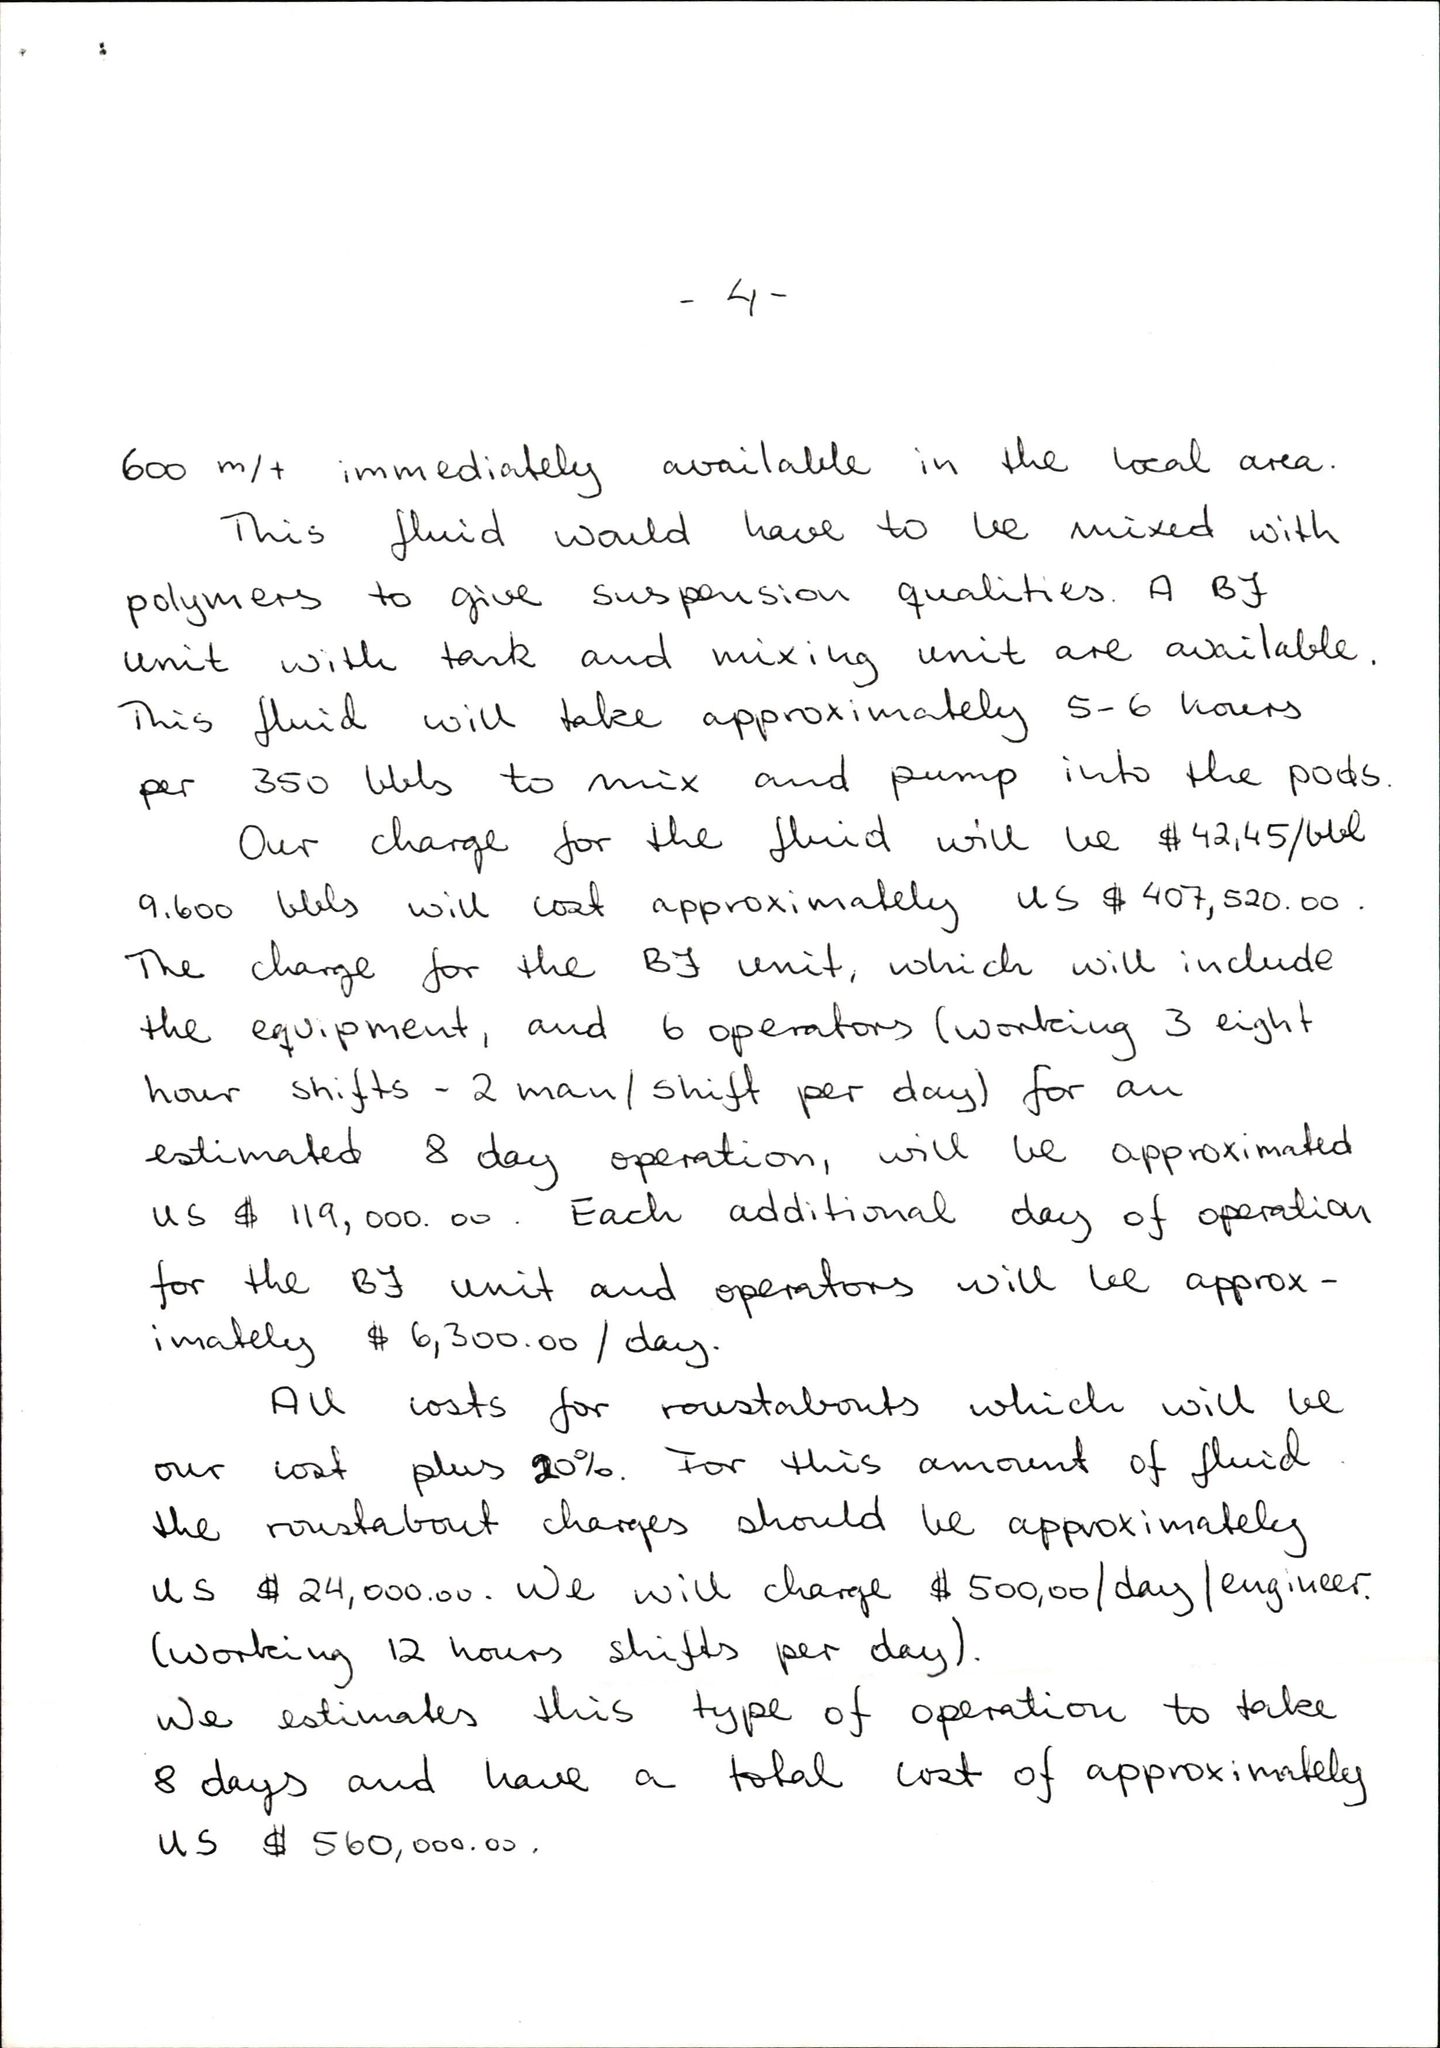 - 4 -
600 m/t immediately available in the local area.
This fluid would have to be mixed with
polymers to give suspension qualities. A BJ
unit with tank and mixing unit are available.
This fluid will take approximately 5-6 hours
per 350 bbls to mix and pump into the pods.
Our charge for the fluid will be $ 42,45/bbl
9.600 bbls will cost approximately US $ 407,520.00.
The charge for the BJ unit, which will include
the equipment, and 6 operators (working 3 eight
hour shifts - 2 man/shift per day) for an
estimated 8 day operation, will be approximated
US $ 119,000.00. Each additional day of operation
for the BJ unit and operators will be approx-
imately $ 6,300.00/day.
All costs for roustabouts which will be
our cost plus 20%. For this amount of fluid
the roustabout charges should be approximately
US $ 24,000.00. We will charge $ 500,00/day/engineer.
(working 12 hours shifts per day).
We estimates this type of operation to take
8 days and have a total cost of approximately
US $ 560,000.00.